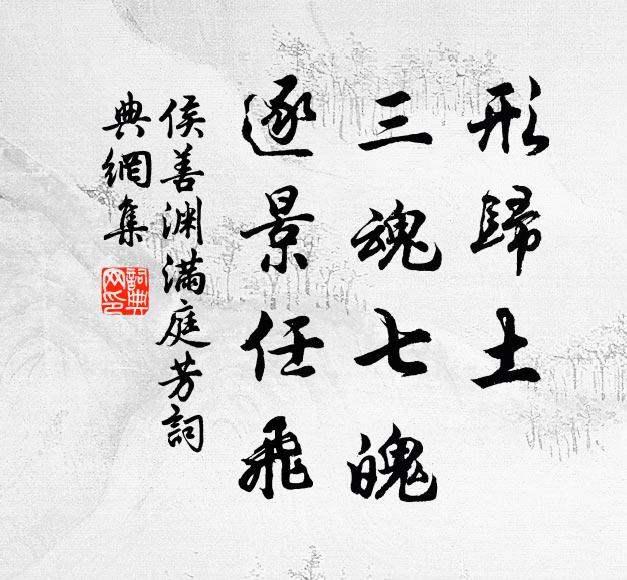 形歸土
三魂七魄
逐景任飛
侯善渊滿庭芳詞
典網集
詞典
网印